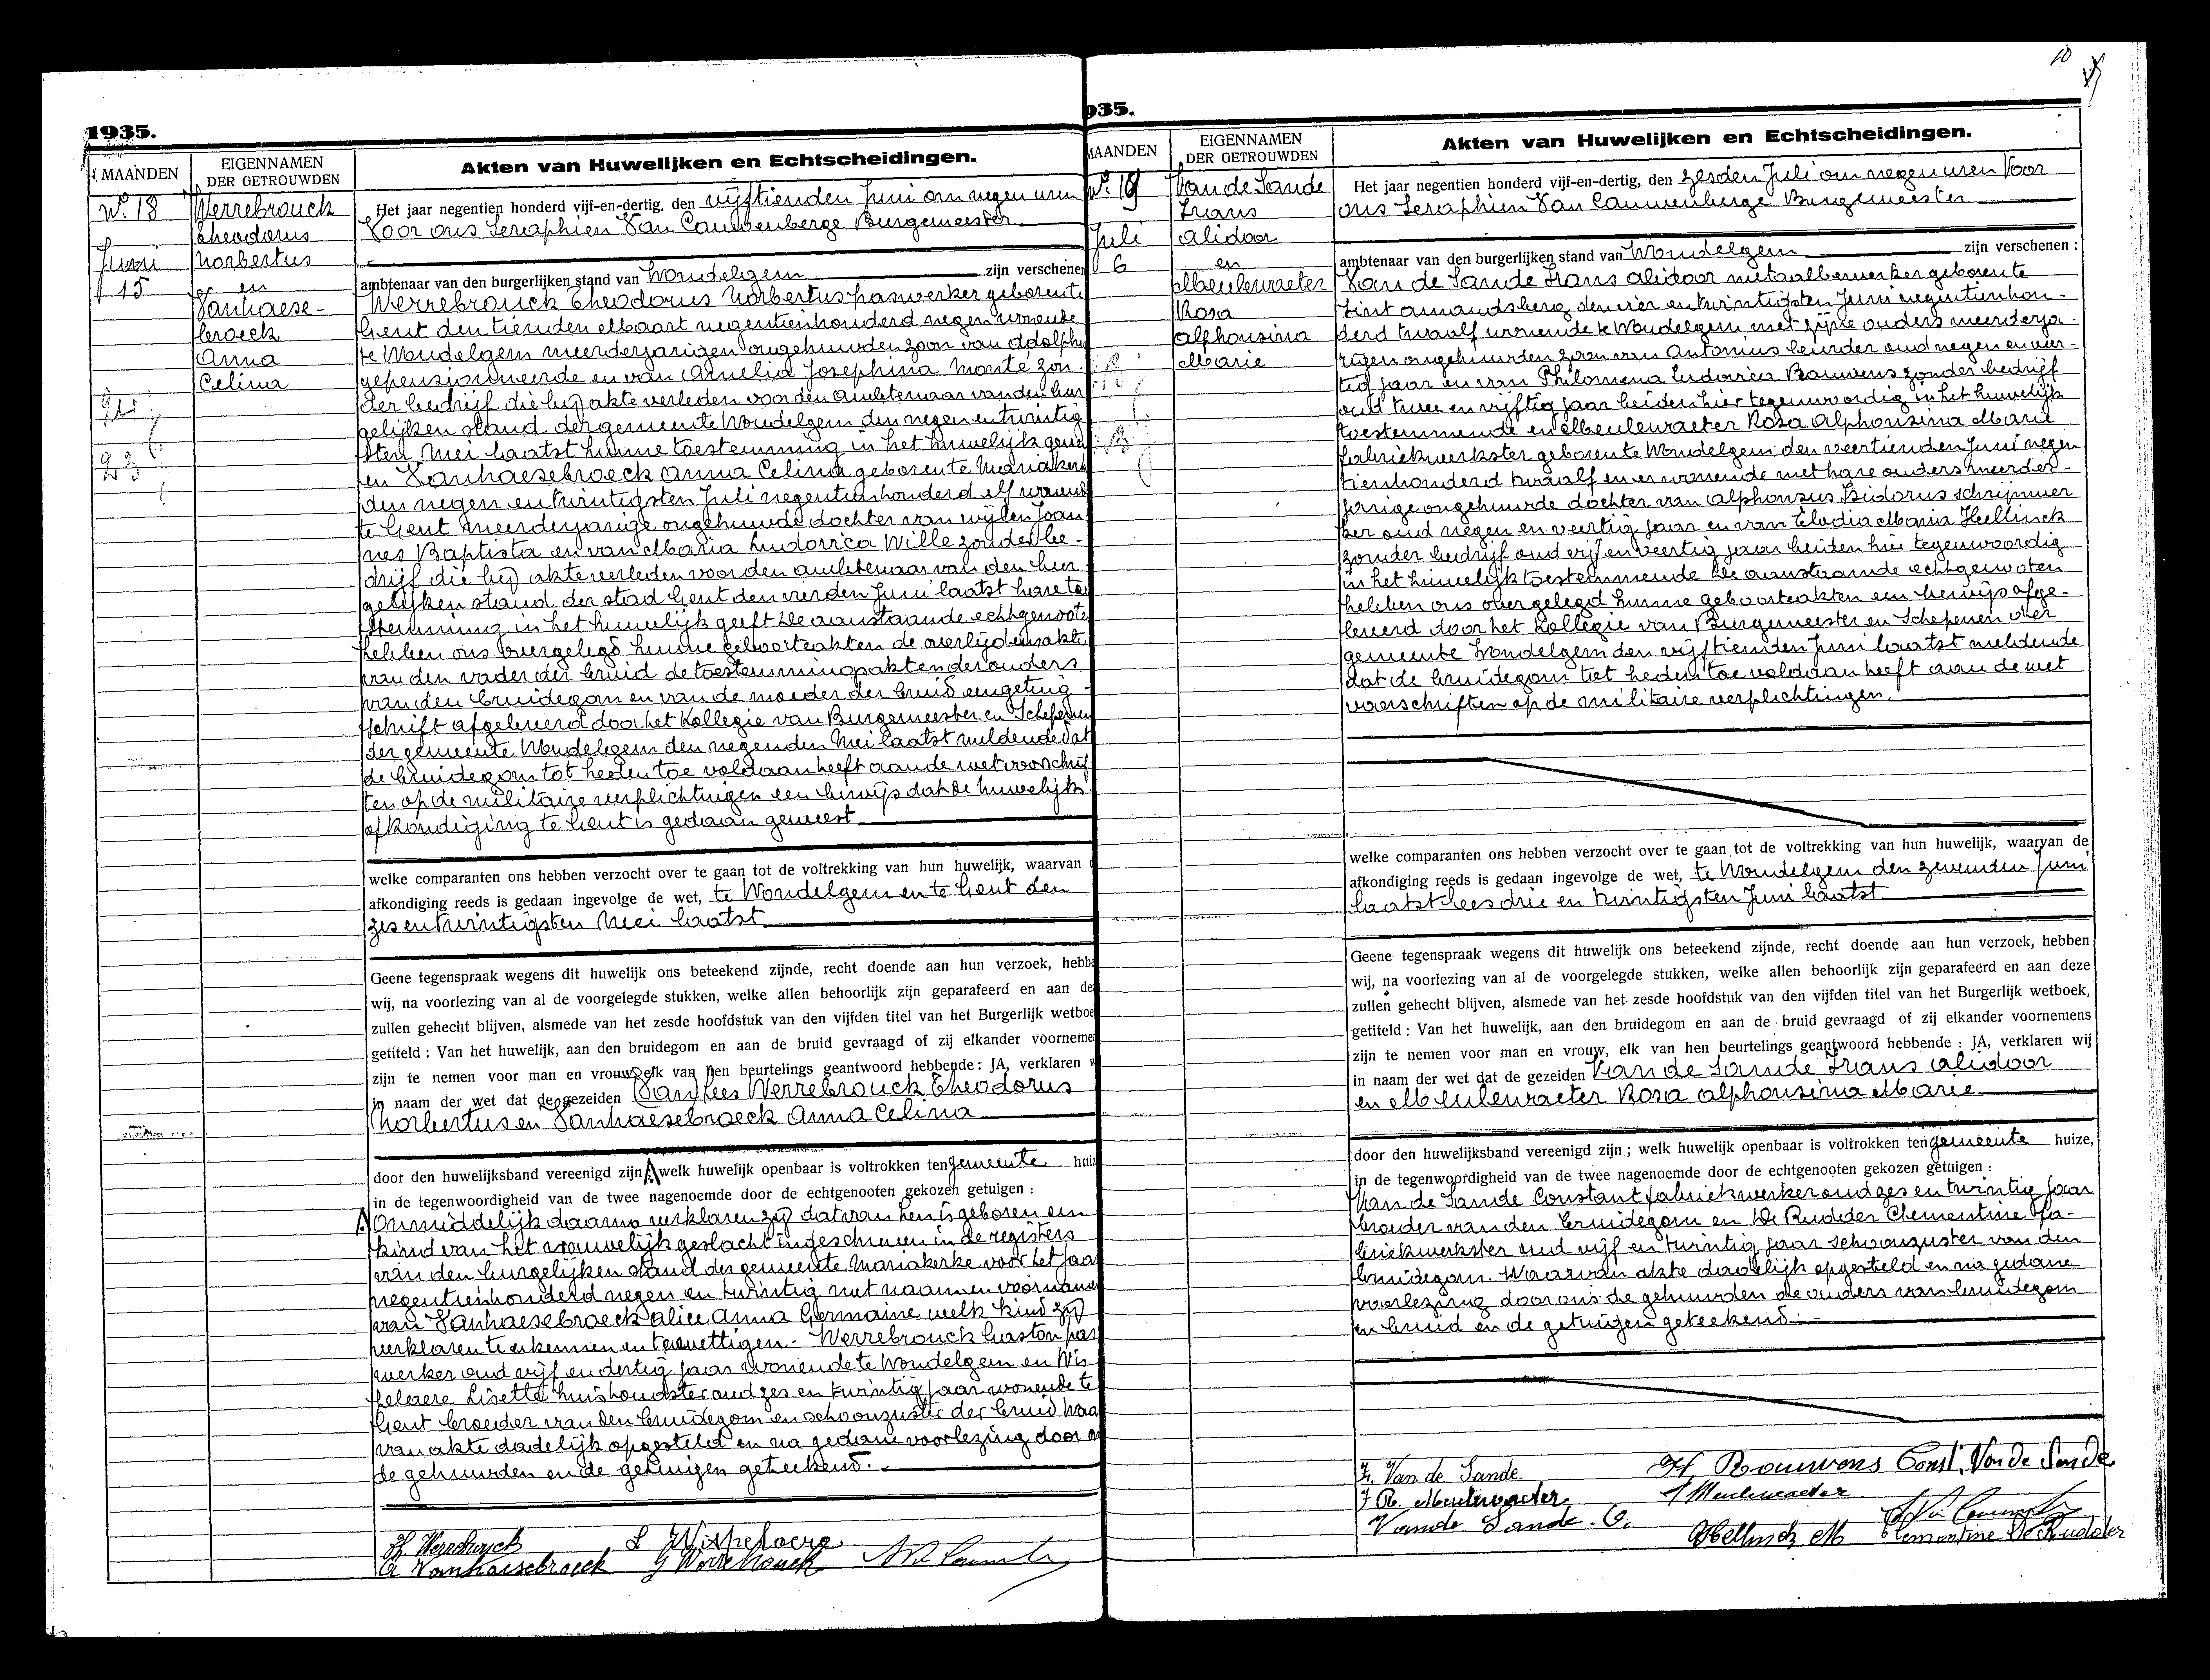 10
1935.
MAANDEN
EIGENNAMEN
DER GETROUWDEN
Akten van Huwelijken en Echtscheidingen.
No. 18
Juni
15
Werrebrouck
Theodorus
Norbertus
en
Vanhaese-
broeck
Anna
Celina
Het jaar negentien honderd vijf-en-dertig, den vijftienden Juni om negen uren
Voor ons Seraphien Van Cauwenberge Burgemeester
ambtenaar van den burgerlijken stand van Wondelgem zijn verschenen
Werrebrouck Theodorus Norbertus paswerker geboren te
Gent den tienden Maart negentienhonderd negen wonende
te Wondelgem meerderjarigen ongehuwden zoon van Adolphu
gepensionneerde en van Amelia Josephina Monté zon-
der bedrijf die bij akte verleden voor den ambtenaar van den bur
gelijken stand der gemeente Wondelgem den negen en twintig
sten Mei laatst hunne toestemming in het huwelijk geven
en Vanhaesebroeck Anna Celina geboren te Mariakerk
den negen en twintigsten Juli negentienhonderd elf wonend
te Gent meerderjarige ongehuwde dochter van wijlen Joan
nes Baptista en van Maria Ludovica Wille zonder be-
drijf die bij akte verleden voor den ambtenaar van den bur
gelijken stand der stad Gent den vierden Juni laatst hare toe
stemming in het huwelijk geeft De aanstaande echtgenoote
hebben ons overgelegd hunne geboorteakten de overlijdensakte
van den vader der bruid de toestemmingsakten der ouders
van den bruidegom en van de moeder der bruid een getuig-
schrift afgeleverd door het Kollegie van Burgemeester en Schepenen
der gemeente Wondelgem den negenden Mei laatst meldende dat
de bruidegom tot heden toe voldaan heeft aan de wetvoorschrif
ten op de militaire verplichtingen een bewijs dat de huwelijks
afkondiging te Gent is gedaan geweest
welke comparanten ons hebben verzocht over te gaan tot de voltrekking van hun huwelijk, waarvan d
afkondiging reeds is gedaan ingevolge de wet, te Wondelgem en te Gent den
zes en twintigsten Mei laatst
Geene tegenspraak wegens dit huwelijk ons beteekend zijnde, recht doende aan hun verzoek, hebbe
wij, na voorlezing van al de voorgelegde stukken, welke allen behoorlijk zijn geparafeerd en aan de
zullen gehecht blijven, alsmede van het zesde hoofdstuk van den vijfden titel van het Burgerlijk wetboe
getiteld : Van het huwelijk, aan den bruidegom en aan de bruid gevraagd of zij elkander voorneme
zijn te nemen voor man en vrouw, elk van hen beurtelings geantwoord hebbende : JA, verklaren w
in naam der wet dat de gezeiden Van lees Werrebrouck Theodorus
Norbertus en Vanhaesebroeck Anna Celina
door den huwelijksband vereenigd zijn; welk huwelijk openbaar is voltrokken ten gemeente huiz
in de tegenwoordigheid van de twee nagenoemde door de echtgenooten gekozen getuigen :
Onmiddelijk daarna verklaren zij dat van hen is geboren een
kind van het vrouwelijk geslacht ingeschreven in de registers
van den burgelijken stand der gemeente Mariakerke voor het jaar
negentienhonderd negen en twintig met naam en voornamen
van Vanhaesebroeck Alice Anna Germaine welk kind zij
verklaren te erkennen en te wettigen. Werrebrouck Gaston pas
werker oud vijf en dertig jaar wonende te Wondelgem en Wis
pelaere Lisetta huishoudster oud zes en twintig jaar wonende te
Gent broeder van den bruidegom en schoonzuster der bruid Waar
van akte dadelijk opgesteld en na gedane voorlezing door o
de gehuwden en de getuigen geteekend.
Th Werrebrouck L Wispelaere
A Vanhaesebroeck G Werrebrouck
935.
MAANDEN
EIGENNAMEN
DER GETROUWDEN
Akten van Huwelijken en Echtscheidingen.
No. 19
Juli
6
Van de Sande
Frans
Alidoor
en
Meulewaeter
Rosa
Alphonsina
Marie
Het jaar negentien honderd vijf-en-dertig, den zesden Juli om negen uren Voor
ons Seraphien Van Cauwenberge Burgemeester
ambtenaar van den burgerlijken stand van Wondelgem zijn verschenen :
Van de Sande Frans Alidoor metaalbewerker geboren te
Sint Amandsberg den vier en twintigsten Juni negentienhon-
derd twaalf wonende te Wondelgem met zijne ouders meerderja-
rigen ongehuwden zoon van Antonius beurder oud negen en veer-
tig jaar en van Philomena Ludovica Bauwens zonder bedrijf
oud twee en vijftig jaar beiden hier tegenwoordig in het huwelijk
toestemmende en Meulewaeter Rosa Alphonsina Marie
fabriekwerkster geboren te Wondelgem den veertienden Juni negen
tienhonderd twaalf en er wonende met hare ouders meerder-
jarige ongehuwde dochter van Alphonsus Isidorus schrijnwer
ker oud negen en veertig jaar en van Elodia Maria Hellinck
zonder bedrijf oud vijf en veertig jaar beiden hier tegenwoordig
in het huwelijk toestemmende De aanstaande echtgenooten
hebben ons overgelegd hunne geboorteakten een bewijs afge-
leverd door het Kollegie van Burgemeester en Schepenen der
gemeente Wondelgem den vijftienden Juni laatst meldende
dat de bruidegom tot heden toe voldaan heeft aan de wet
voorschriften op de militaire verplichtingen.
welke comparanten ons hebben verzocht over te gaan tot de voltrekking van hun huwelijk, waarvan de
afkondiging reeds is gedaan ingevolge de wet, te Wondelgem den zevenden Juni
laatst lees drie en twintigsten Juni laatst
Geene tegenspraak wegens dit huwelijk ons beteekend zijnde, recht doende aan hun verzoek, hebben
wij, na voorlezing van al de voorgelegde stukken, welke allen behoorlijk zijn geparafeerd en aan deze
zullen gehecht blijven, alsmede van het zesde hoofdstuk van den vijfden titel van het Burgerlijk wetboek,
getiteld : Van het huwelijk, aan den bruidegom en aan de bruid gevraagd of zij elkander voornemens
zijn te nemen voor man en vrouw, elk van hen beurtelings geantwoord hebbende : JA, verklaren wij
in naam der wet dat de gezeiden Van de Sande Frans Alidoor
en Meulewaeter Rosa Alphonsina Marie
door den huwelijksband vereenigd zijn ; welk huwelijk openbaar is voltrokken ten gemeente huize,
in de tegenwoordigheid van de twee nagenoemde door de echtgenooten gekozen getuigen :
Van de Sande Constant fabriekwerker oud zes en twintig jaar
broeder van den bruidegom en De Rudder Clementine fa-
briekwerkster oud vijf en twintig jaar schoonzuster van den
bruidegom. Waarvan akte dadelijk opgesteld en na gedane
voorlezing door ons de gehuwden de ouders van bruidegom
en bruid en de getuigen geteekend.
F. Van de Sande Bauwens Const. Van de Sande
R. Meulewaeter Meulewaeter
Van de Sande. Hellinck M Clementine De Rudder